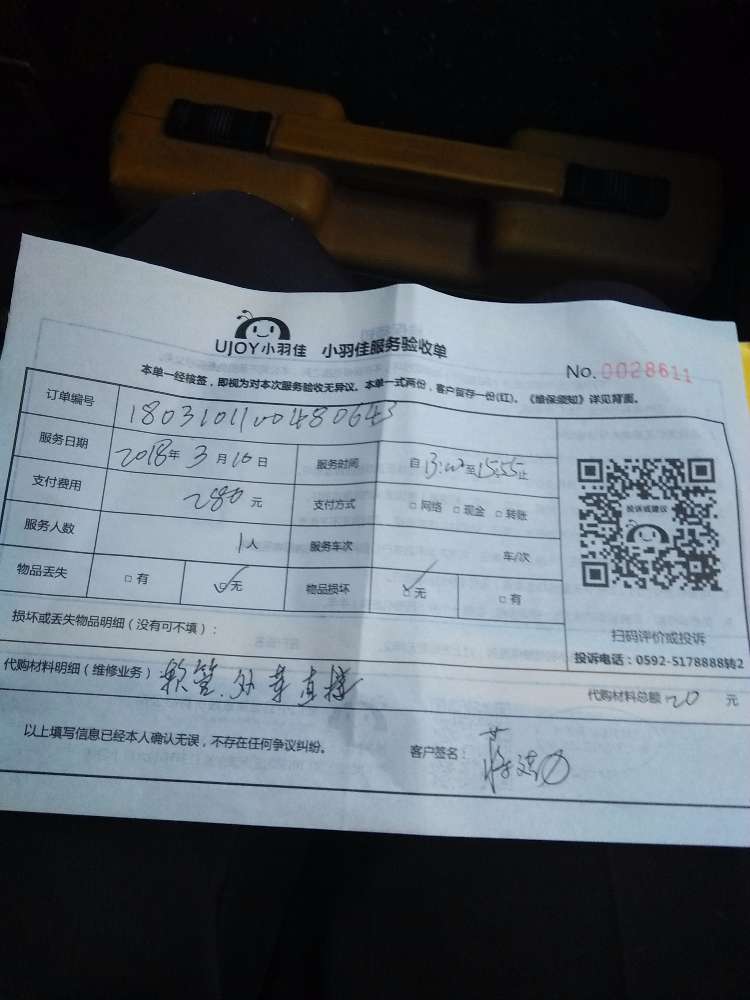 UJOY小羽佳 小羽佳服务验收单
No. 0028611
本单一经核签，即视为对本次服务验收无异议。本单一式两份，客户留存一份(红)。《维保须知》详见背面。
订单编号 1803101100480643
服务日期 2018年 3月10日 服务时间 自13:00至15:55止
支付费用 280元 支付方式 □网络 □现金 □转账
服务人数 1人 服务车次 车/次
物品丢失 □有 ☑无 物品损坏 ☑无 □有
投诉或建议
扫码评价或投诉
投诉电话：0592-5178888转2
损坏或丢失物品明细（没有可不填）：
代购材料明细（维修业务） 软管.外牙直接 代购材料总额 20 元
以上填写信息已经本人确认无误，不存在任何争议纠纷。 客户签名：